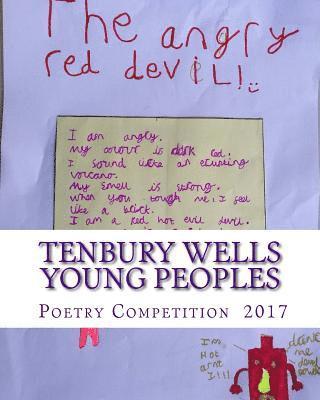 The angry
red devil! :)
I am angry.
My colour is dark red.
I sound like an erupting
volcano.
My smell is strong.
When you touch me, I feel
like a brick.
I am a red hot evil devil.
TENBURY WELLS
YOUNG PEOPLES
Poetry Competition 2017
I'm
Hot
arnt
I!!!!
me